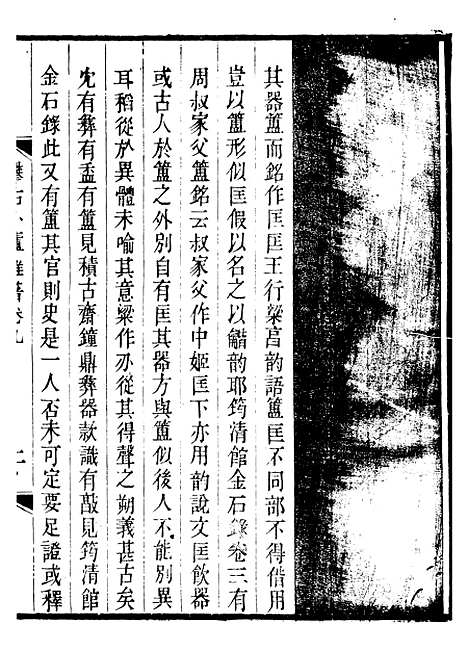 其器簠而銘作匡匡王行粱亯韵語簠匡不同部不得借用
豈以簠形似匡假以名之以龤韵耶筠清館金石錄卷三有
周叔家父簠銘云叔家父作中姬匡下亦用韵說文匡飲器
或古人於簠之外別自有匡其器方與簠似後人不能別異
耳稻從㫃異體未喻其意粱作刅從其得聲之朔義甚古矣
史冘有彝有盉有簠見積古齋鐘鼎彝器款識有㪤見筠清館
金石錄此又有簠其官則史是一人否未可定要足證或釋
小廬雜著卷九